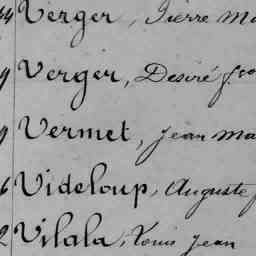 44 Verger, Pierre Ma
9 Verger, Desiré fço
9 Vermet, Jean Ma
6 Videloup, Auguste
2 Vilala, Louis Jean